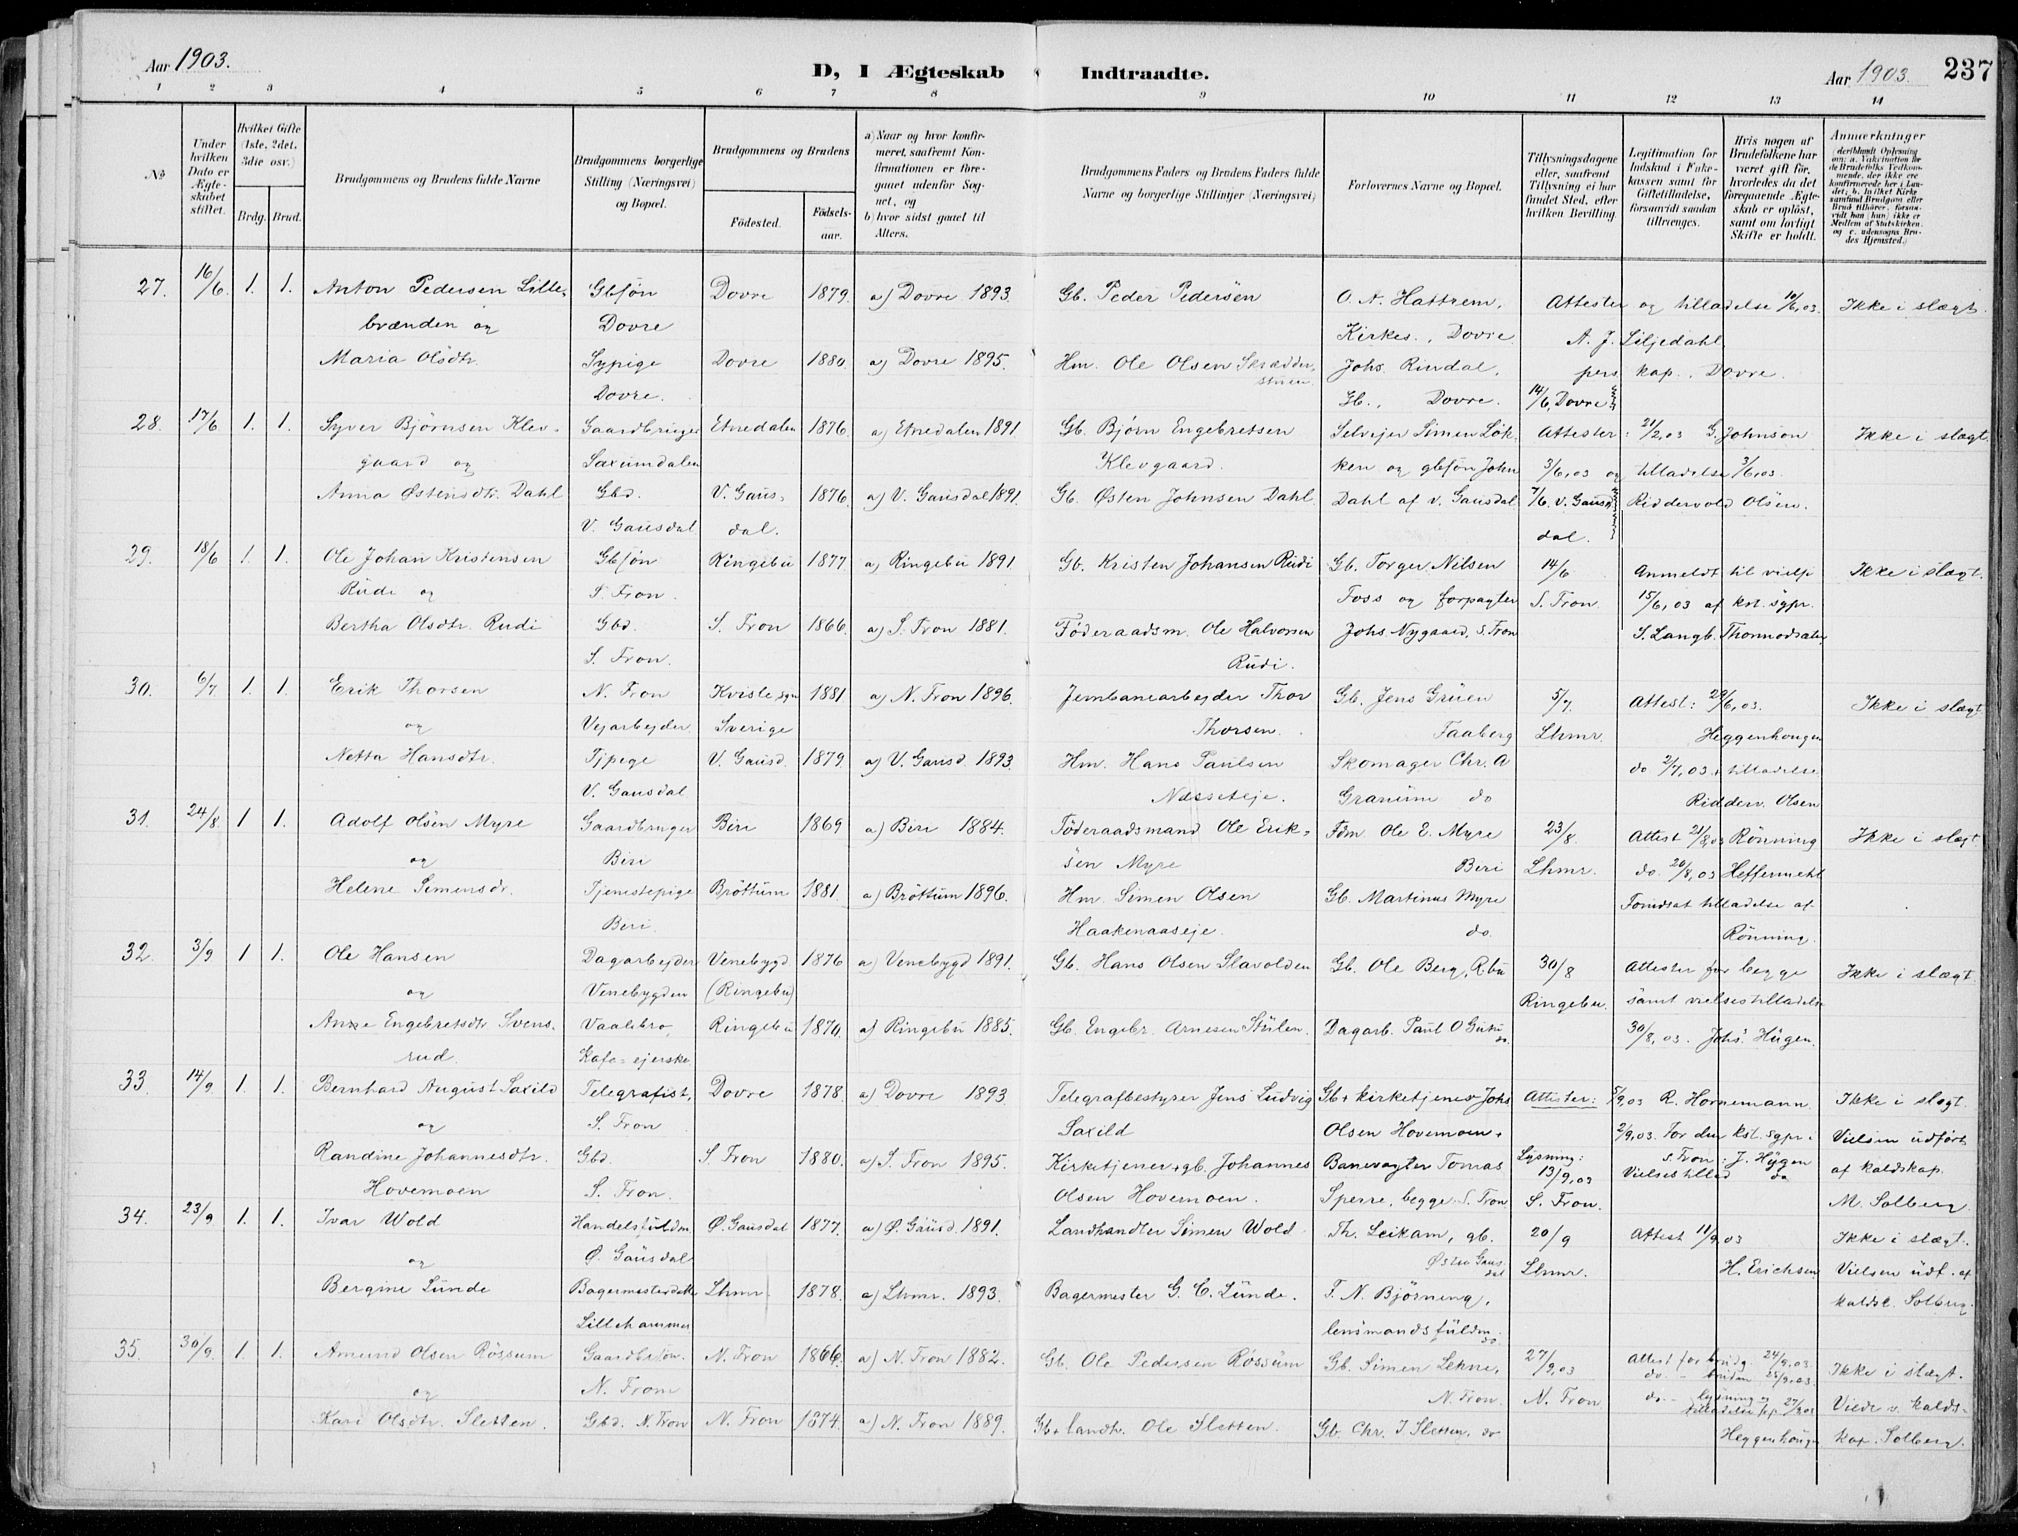 Aar 1903.
D, I Ægteskab Indtraadte.
Aar 1903. 237
1 2 3 4 5 6 7 8 9 10 11 12 13 14
№
Under hvilken Dato er Ægteskabet stiftet.
Hvilket Gifte (1ste, 2det, 3die osv.)
Brdg. Brud.
Brudgommens og Brudens fulde Navne
Brudgommens borgerlige Stilling (Næringsvei) og Bopæl.
Brudgommens og Brudens
Fødested. Fødselsaar.
a) Naar og hvor konfirmeret, saafremt Konfirmationen er foregaaet udenfor Sognet, og
b) hvor sidst gaaet til Alters.
Brudgommens Faders og Brudens Faders fulde Navne og borgerlige Stillinger (Næringsvei)
Forlovernes Navne og Bopæl.
Tillysningsdagene eller, saafremt Tillysning ei har fundet Sted, efter hvilken Bevilling.
Legitimation for Indskud i Enkekassen samt for Giftetilladelse, forsaavidt saadan tiltrænges.
Hvis nogen af Brudefolkene har været gift før, hvorledes da det foregaaende Ægteskab er opløst, samt om lovligt Skifte er holdt.
Anmærkninger
27. 16/6 1. 1. Anton Pedersen Lille- Gbsøn Dovre 1879. a) Dovre 1893. Gb. Peder Pedersen O. N. Hattrem, Attester og tilladelse 10/6,03. Ikke i slægt.
brænden og Dovre Kirkes., Dovre A. J. Liljedahl
Maria Olsdtr. Sypige Dovre 1880 a) Dovre 1895. Hm. Ole Olsen Skrædder- Johs. Rindal, pers kap., Dovre.
Dovre. stuen Gb., Dovre. 14/6, Dovre
28. 17/6 1. 1. Syver Bjørnsen Klev- Gaardbruger Etnedalen 1876. a) Etnedalen 1891 Gb. Bjørn Engebretsen Selvejer Simen Løk- Attester: 21/2,03 G. Johnson Ikke i slægt
gaard og Saxumdalen Klevgaard. ken og gbsøn John 3/6,03 og tilladelse 3/6,03.
Anna Østensdtr. Dahl Gbd. V. Gaus- 1876 a) V. Gausdal 1891. Gb. Østen Johnsen Dahl Dahl af v. Gausdal 7/6. v. Gaus- Riddervold Olsen.
V. Gausdal dal. dal.
29. 18/6 1. 1. Ole Johan Kristensen Gbsøn Ringebu 1877. a) Ringebu 1891 Gb. Kristen Johansen Rudi Gb. Torger Nilsen 14/6 Anmeldt til vielse Ikke i slægt.
Rudi og S. Fron. Foss og forpagter S. Fron. 15/6,03 af kst. sgpr.
Bertha Olsdtr. Rudi Gbd. S. Fron 1866. a) S. Fron 1881. Føderaadsm. Ole Halvorsen Johs. Nygaard, S. Fron S. Langb. Thormodsæter
S. Fron. Rudi.
30. 6/7 1. 1. Erik Thorsen N. Fron Kviste sgn 1881 a) N. Fron 1896. Jernbanearbejder Thor Gb. Jens Gruen 5/7. Attest: 29/6,03. Ikke i slægt
og Vejarbejder Sverige Thorsen. Faaberg Lhmr. Heggenhougen
Netta Hansdtr. Tjpige V. Gausd. 1879. a) V. Gausd. 1893. Hm. Hans Paulsen Skomager Chr. A do 2/7,03 tilladelse
V. Gausdal Næsseteje. Granum do Ridderv. Olsen
31. 24/8. 1 1. Adolf Olsen Myre Gaardbruger Biri 1869 a) Biri 1884. Føderaadsmand Ole Erik- Fdm Ole E. Myre 23/8. Attest 21/8,03 Rønning Ikke i slægt
og Biri sen Myre Biri Lhmr. do. 20/8,03 Heffermehl
Helene Simensdr. Tjenestepige Brøttum 1881. a) Brøttum 1896. Hm. Simen Olsen Gb. Martinus Myre Forudsat tilladelse af
Biri. Haakenaaseje. do. Rønning.
32. 3/9 1 1. Ole Hansen Dagarbejder Venebygd 1876 a) Venebygd 1891. Gb. Hans Olsen Slavolden Gb. Ole Berg, R.bu 30/8 Attester for begge Ikke i slægt
og Venebygden (Ringebu) Ringebu. samt vielsestilladelse
Anne Engebretsdtr Svens- Vaalebro, Ringebu 1870. a) Ringebu 1885. Gb. Engebr. Arnesen Stulen. Dagarb. Paul O 30/8,03. Johs. Hügen.
rud. Kafe-ejerske
33. 14/9. 1. 1. Bernhard August Saxild Telegrafist, Dovre 1878. a) Dovre 1893 Telegrafbestyrer Jens Ludvig Gb + kirketjener Johs Attester: 5/9,03 R. Hornemann. Ikke i slægt.
og S. Fron Saxild Olsen Hovemoen. 2/9,03. For den kst. sgpr. i Vielsen udført
Randine Johannesdtr. Gbd. S. Fron 1880. a) S. Fron 1895. Kirketjener + gb. Johannes Banevogter Tomas Lysning: S. Fron: J. Hügen af kaldskap.
Hovemoen S. Fron. Olsen Hovemoen. Sperre, begge S. Fron 13/9,03 S. Fron. Vielsestillad do M. Solberg
34. 23/9 1. 1. Ivar Wold Handelsfuldm. Ø. Gausdal 1877. a) Ø. Gausd. 1891. Landhandler Simen Wold Th. Leikam, gb. 20/9 Attest 11/9,03 Ikke i slægt.
og Ø. Gausdal Østre Gausdal Lhmr. H. Erichsen Vielsen udf. af
Bergine Lunde Bagermesterdatter Lhmr. 1878. a) Lhmr. 1893. Bagermester G. C. Lunde. F. N. Bjørning, kaldsk. Solberg.
Lillehammer lensmandsfuldm. do
35. 30/9. 1. 1. Amund Olsen Røssum Gaardbr. N. Fron 1866. a) N. Fron 1882. Gb. Ole Pedersen Røssum Gb. Simen Lekne, 27/9,03 Attest for brudg. 24/9.03. Ikke i slægt.
og N. Fron N. Fron. N. Fron do - bruden 25/9.03.
Kari Olsdtr. Sletten. Gbd. N. Fron N. Fron 1874. a) N. Fron 1889. Gb + landh. Ole Sletten. Gb. Chr. J Sletten, do do - lysning og tilladelse 27/9.03 Viede v. kalds-
Heggenhougen kap. Solberg.